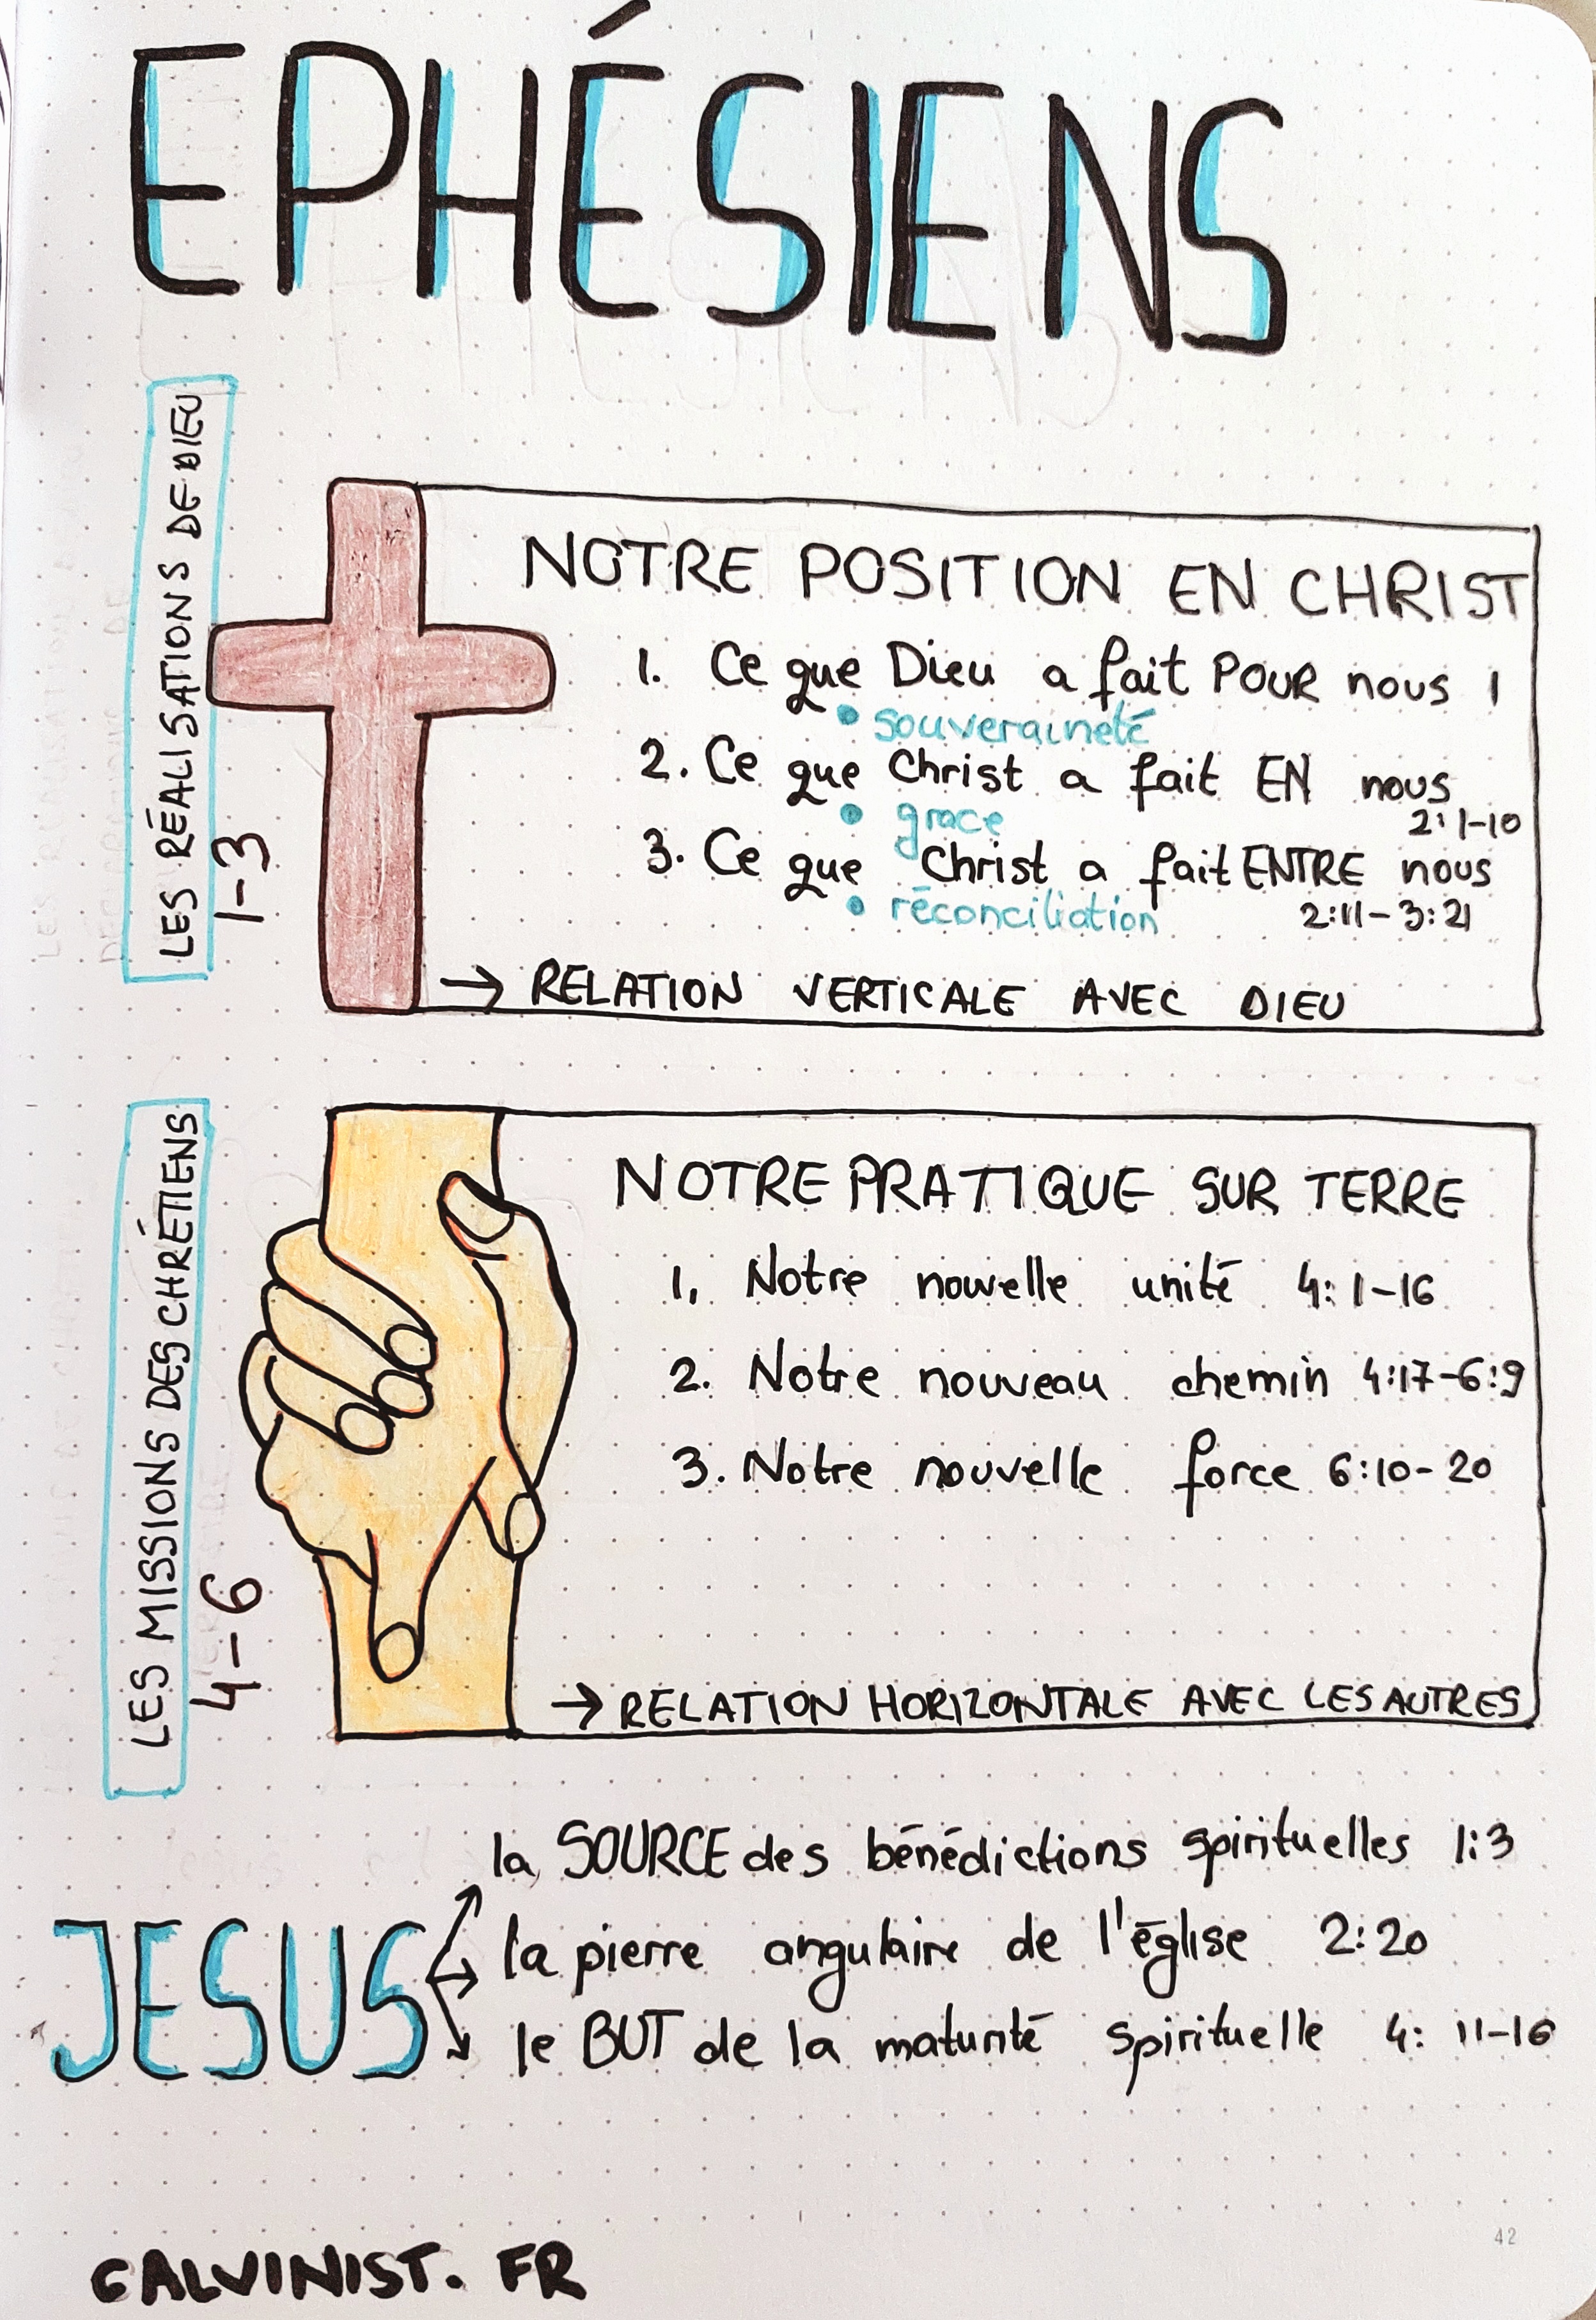 EPHÉSIENS
LES RÉALISATIONS DE DIEU
1-3
NOTRE POSITION EN CHRIST
1. Ce que Dieu a fait POUR nous 1
• souveraineté
2. Ce que Christ a fait EN nous
• grace 2:1-10
3. Ce que Christ a fait ENTRE nous
• réconciliation 2:11-3:21
→ RELATION VERTICALE AVEC DIEU
LES MISSIONS DES CHRÉTIENS
4-6
NOTRE PRATIQUE SUR TERRE
1. Notre nouvelle unité 4:1-16
2. Notre nouveau chemin 4:17-6:9
3. Notre nouvelle force 6:10-20
→ RELATION HORIZONTALE AVEC LES AUTRES
JESUS
la SOURCE des bénédictions spirituelles 1:3
la pierre angulaire de l'église 2:20
le BUT de la maturité spirituelle 4:11-16
42
CALVINIST.FR